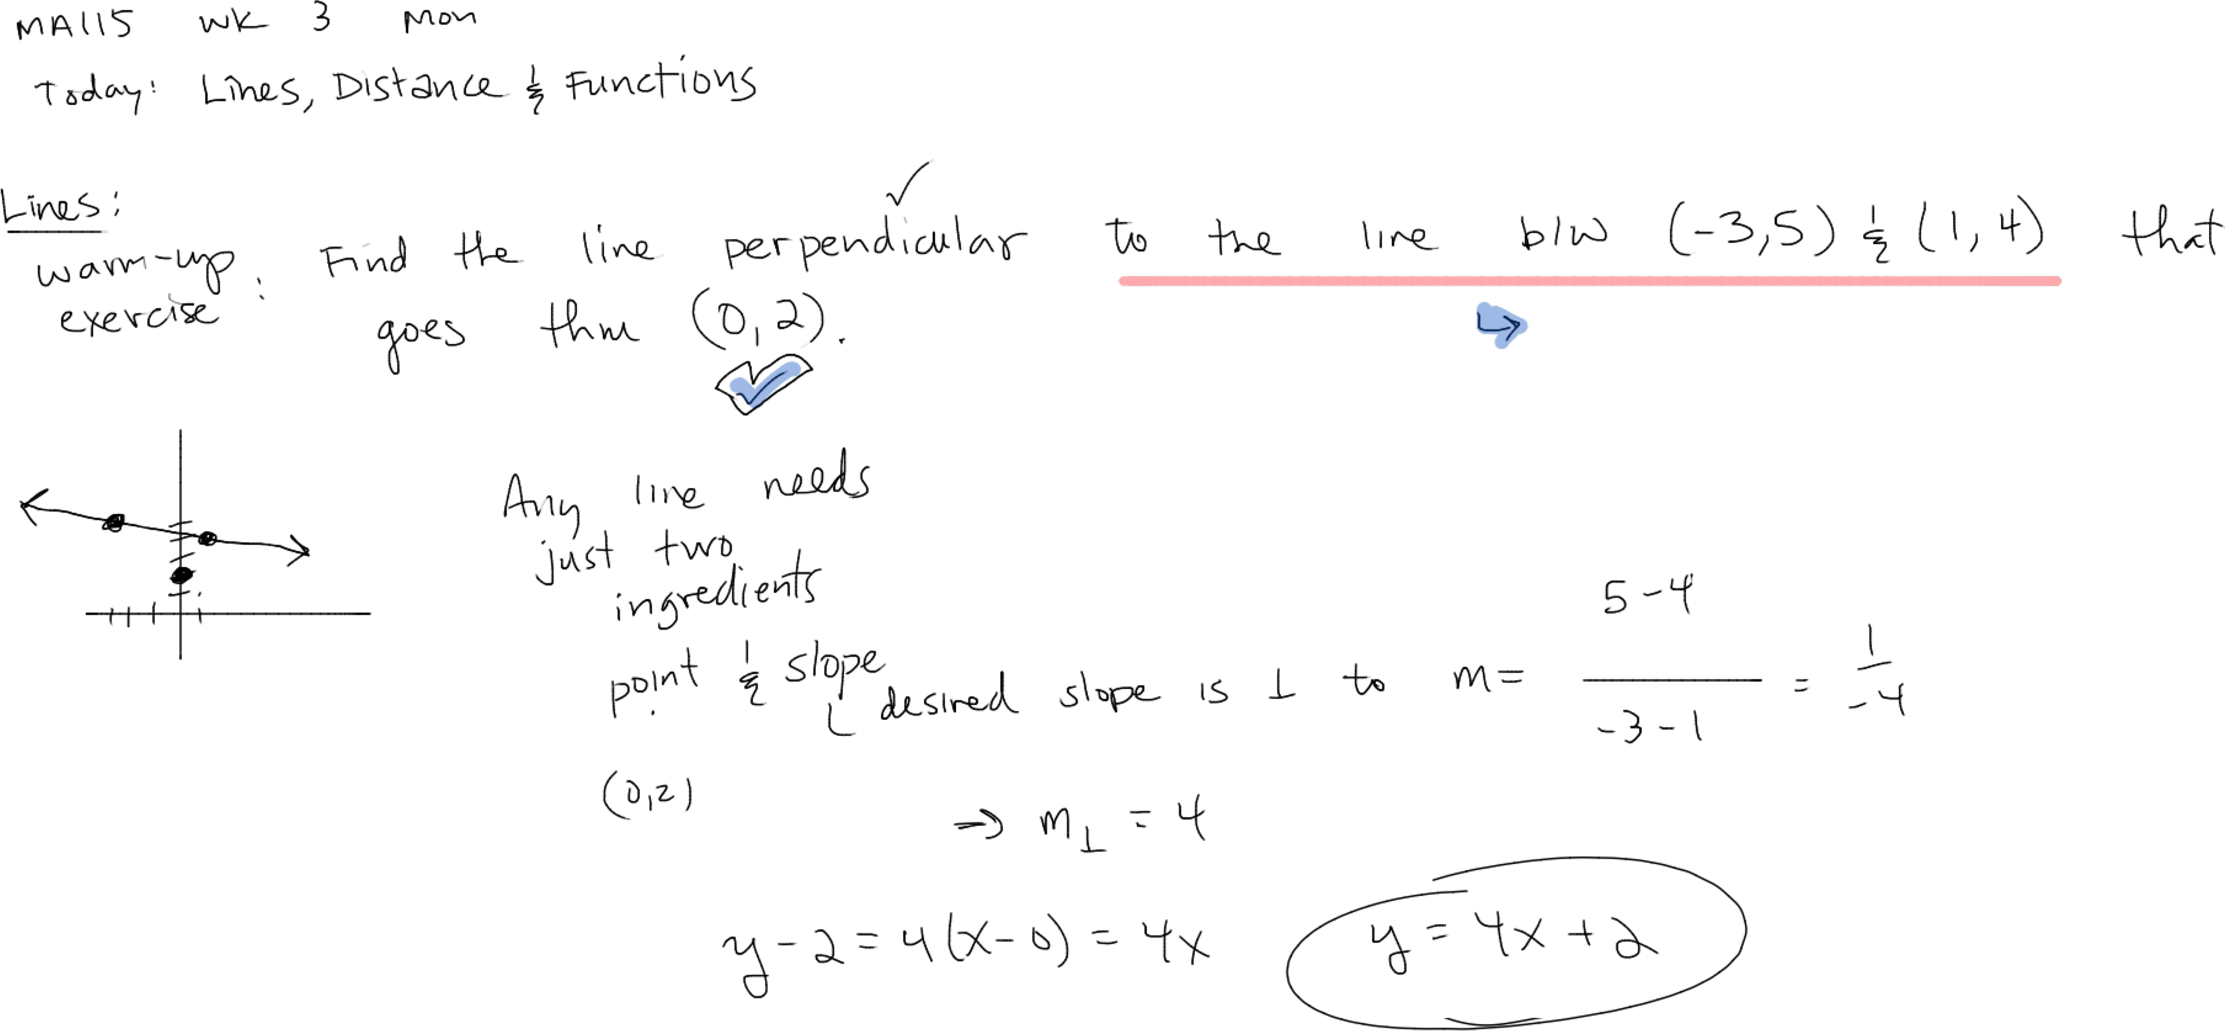 MA115 wk 3 Mon
Today: Lines, Distance & Functions
Lines:
warm-up exercise: Find the line perpendicular to the line b/w (-3,5) & (1,4) that
goes thru (0,2).
Any line needs
just two
ingredients
point & slope
desired slope is ⊥ to m = (5-4)/(-3-1) = 1/-4
(0,2)
⇒ m⊥ = 4
y-2 = 4(x-0) = 4x
y = 4x+2